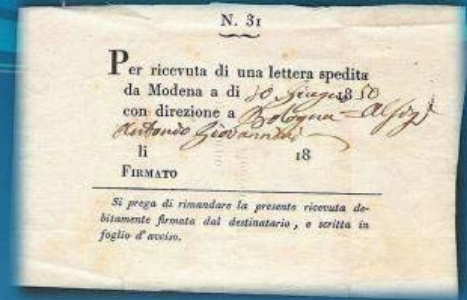 N. 31
Per ricevuta di una lettera spedita
da Modena a di 30 Giugno 1850
con direzione a Bologna =
Antonio
li 18
FIRMATO
Si prega di rimandare la presente ricevuta de-
bitamente firmata dal destinatario, e scritta in
foglio d'avviso.